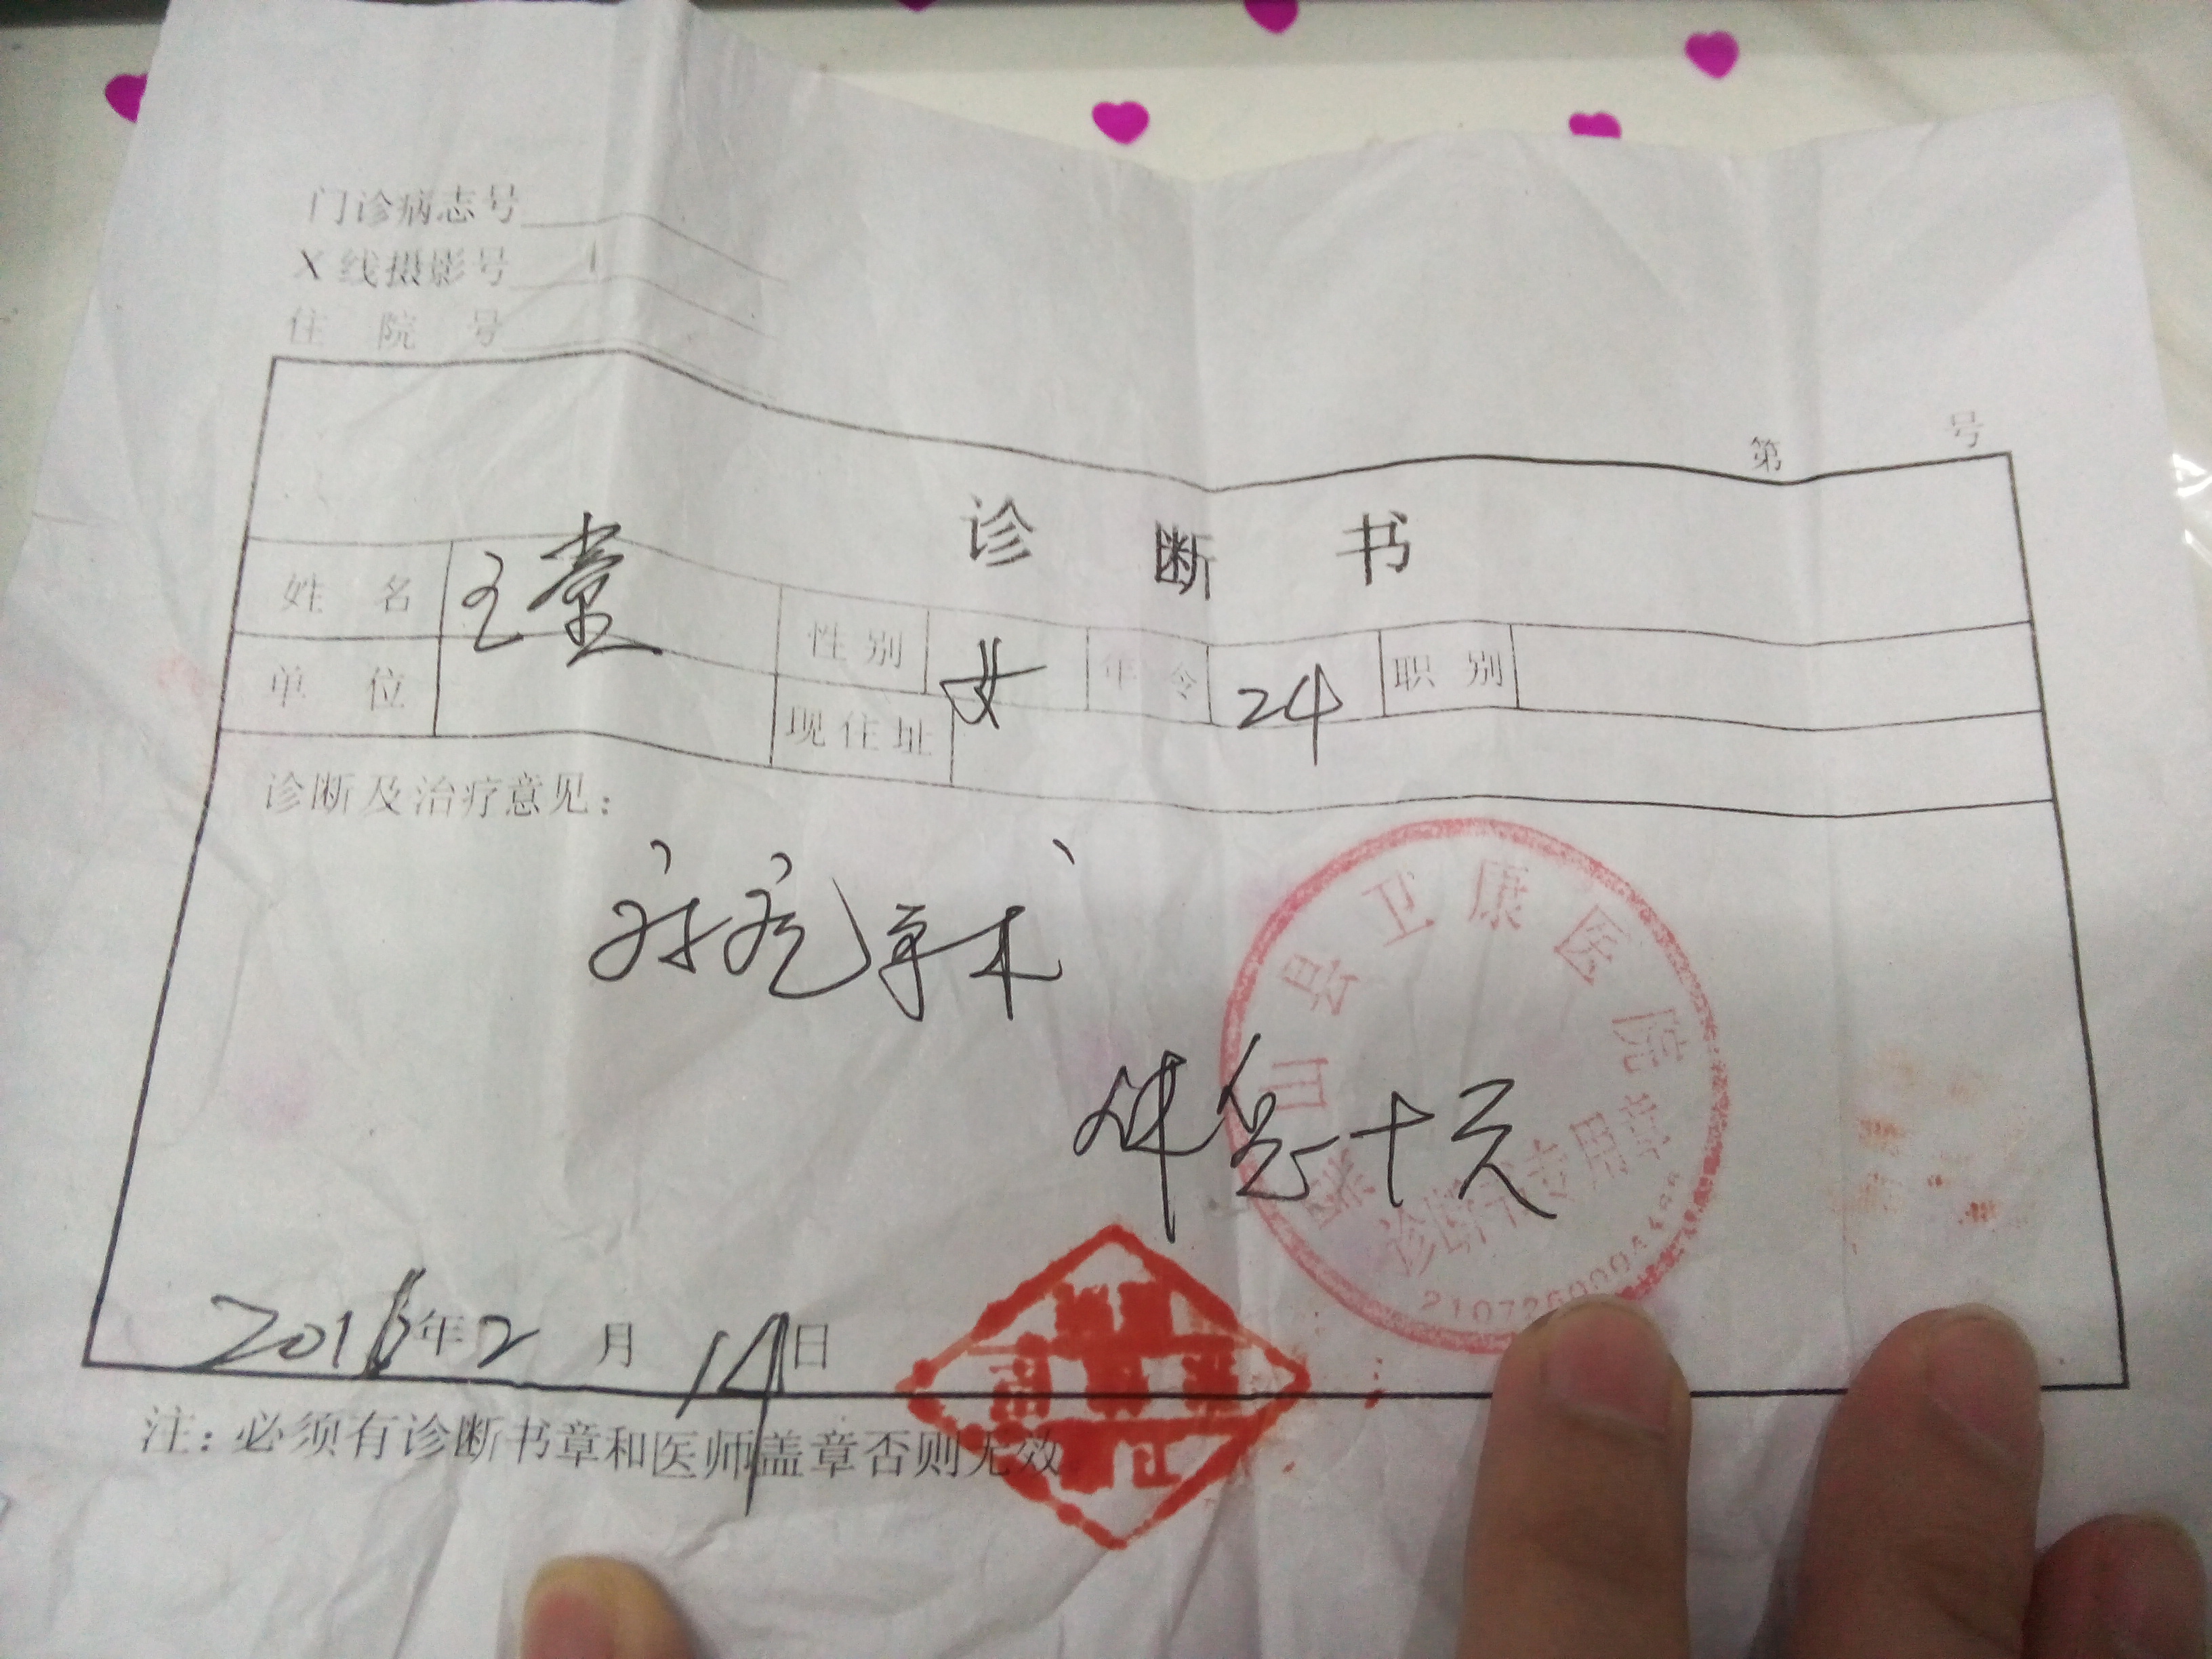 门诊病志号
X线摄影号
住院号
第 号
诊断书
姓名 王莹 性别 女 年令 24 职别
单位 现住址
诊断及治疗意见：
手术
休息十天
山县卫康医院
诊断书专用章
2016年2月14日
注：必须有诊断书章和医师盖章否则无效